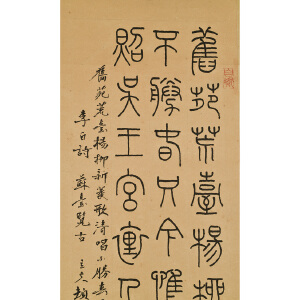 舊苑荒臺楊柳
不勝春只今惟
照吳王宮裏人
舊苑荒臺楊柳新菱歌清唱不勝春
李白詩 蘇臺覽古